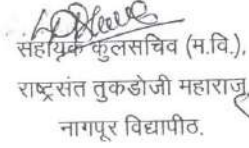 सहायक कुलसचिव (म.वि.),
राष्ट्रसंत तुकडोजी महाराज,
नागपूर विद्यापीठ.